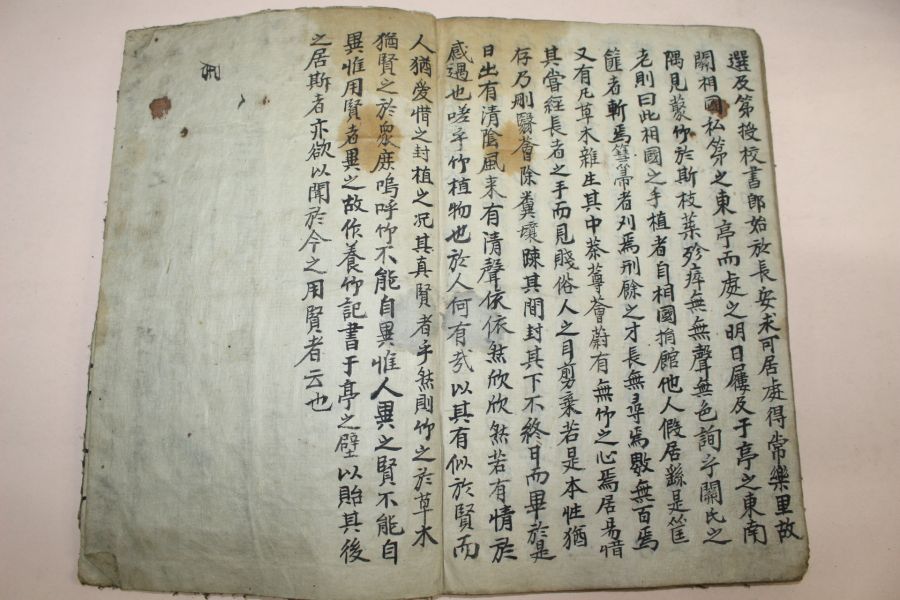 選及第授校書郎始放長安求可居處得常樂里故
關相國私第之東亭而處之明日屨及于亭之東南
隅見叢竹於斯枝葉殄瘁無無聲無色詢乎關氏之
老則曰此相國之手植者自相國捐館他人假居繇是筐
篚者斬焉篲箒者刈焉刑餘之才長無尋焉數無百焉
又有凡草木雜生其中菶蓴薈蔚有無竹之心焉居易惜
其嘗經長者之手而見賤俗人之目剪棄若是本性猶
存乃刪翳薈除糞壤踈其間封其下不終日而畢於是
日出有清陰風来有清聲依依然欣欣然若有情於
感遇也嗟乎竹植物也於人何有哉以其有似於賢而
人猶愛惜之封植之况其真賢者乎然則竹之於草木
猶賢之於衆庶嗚呼竹不能自異惟人異之賢不能自
異惟用賢者異之故作養竹記書于亭之壁以貽其後
之居斯者亦欲以聞於今之用賢者云也